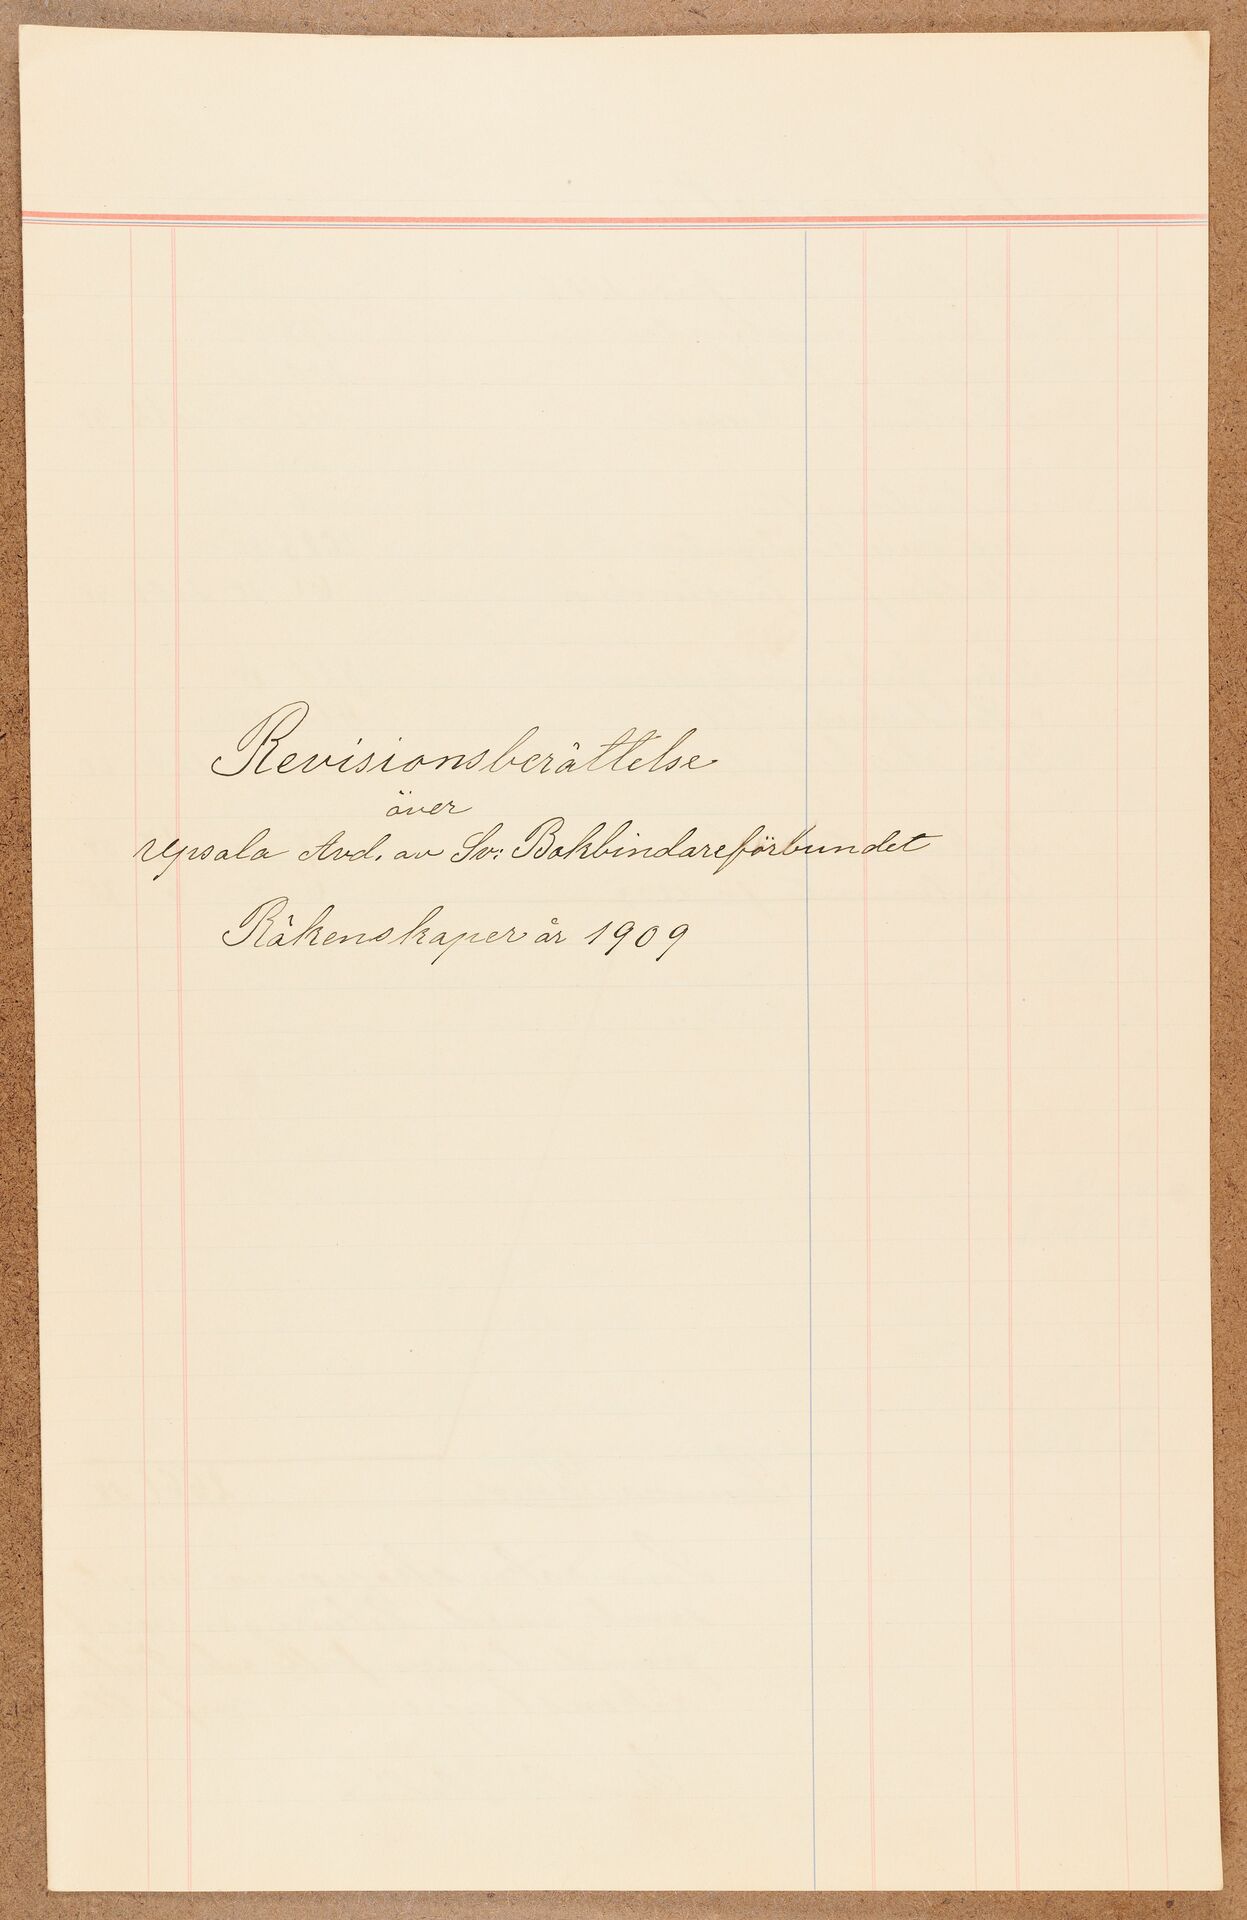 Revisionsberättelse
över
Upsala Avd. av Sv: Bokbindareförbundet
Räkenskaper år 1909